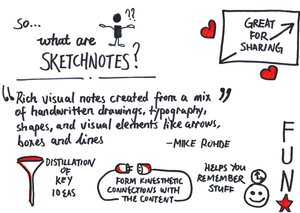 SO...
??
what are
SKETCHNOTES?
GREAT
FOR
SHARING
"Rich visual notes created from a mix
of handwritten drawings, typography,
shapes, and visual elements like arrows,
boxes and lines"
-MIKE ROHDE
DISTILLATION
OF
KEY
IDEAS
FORM KINESTHETIC
CONNECTIONS WITH
THE CONTENT
HELPS YOU
REMEMBER
STUFF
FUN